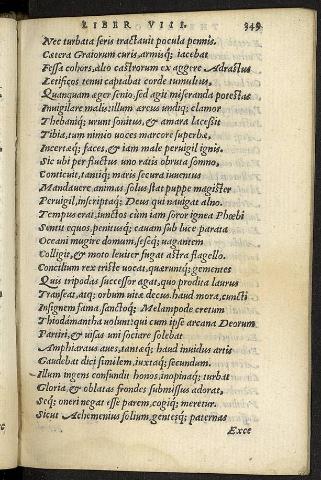 LIBER VIII. 349
Nec turbata feris tractauit pocula pennis.
Cætera Graiorum curis, armisq; iacebat
Fessa cohors, alto castrorum ex aggere Adrastus
Letificos tenui captabat corde tumultus,
Quanquam æger senio, sed agit miseranda potestas
Inuigilare malis: illum æreus undiq; clamor
Thebaniq; urunt sonitus, & amara lacessit
Tibia, tum nimio uoces marcore superbæ,
Incertæq; faces, & iam male peruigil ignis.
Sic ubi per fluctus uno ratis obruta somno,
Conticuit, tantiq; maris secura iuuentus
Mandauere animas: solus stat puppe magister
Peruigil, inscriptaq; Deus qui nauigat alno.
Tempus erat, iunctos cùm iam soror ignea Phœbi
Sentit equos, penitusq; cauam sub luce parata
Oceani mugire domum, seseq; uagantem
Colligit, & moto leuiter fugat astra flagello.
Concilium rex triste uocat, quæruntq; gementes
Quis tripodas successor agat, quo prodita laurus
Transeat, atq; orbum uitæ decus. haud mora, cuncti
Insignem fama, sanctoq; Melampode cretum
Thiodamantha uolunt: qui cum ipse arcana Deorum
Partiri, & uisas uni sociare solebat
Amphiaraus aues, tantæq; haud inuidus artis
Gaudebat dici similem, iuxtaq; secundum.
Illum ingens confundit honos, inopinaq; turbat
Gloria, & oblatas frondes submissus adorat,
Seq; oneri negat esse parem, cogiq; meretur.
Sicut Achemenius solium gentesq; paternas
Exce